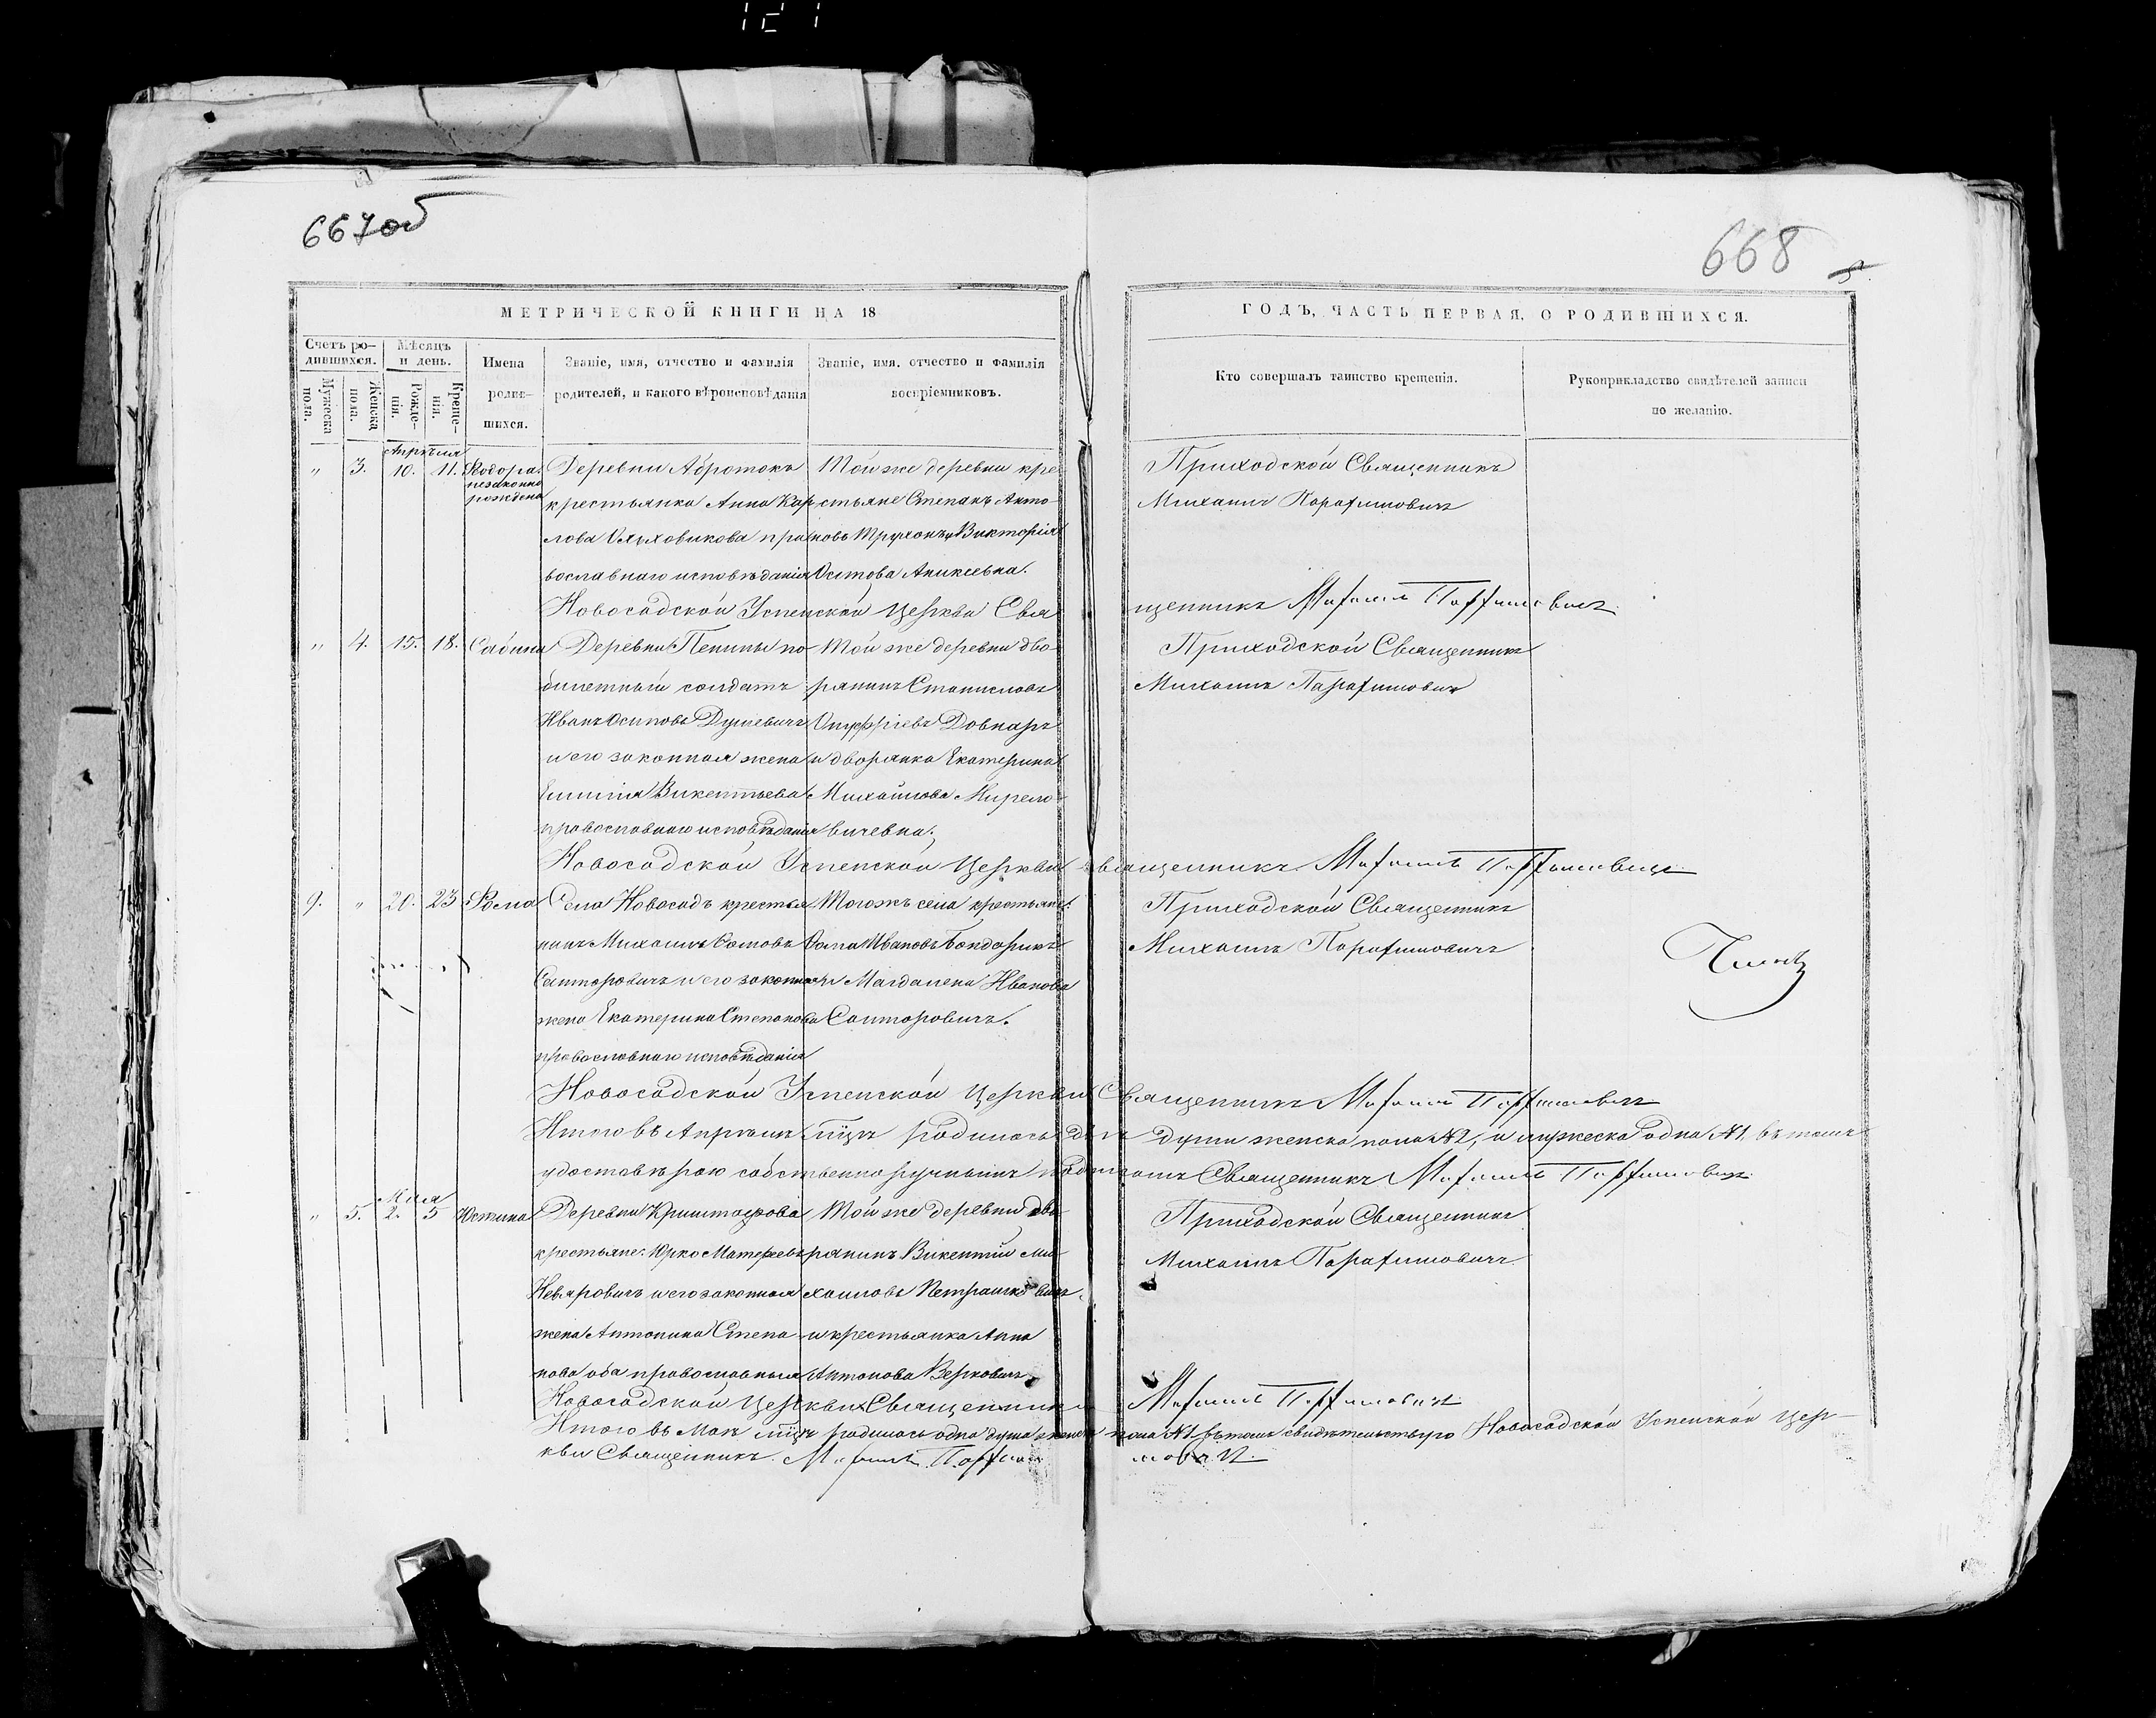 667об
668
МЕТРИЧЕСКОЙ КНИГИ НА 18
ГОДЪ, ЧАСТЬ ПЕРВАЯ, О РОДИВШИХСЯ.
Счетъ ро-
дившихся.
Мужеска
пола.
Женска
пола.
Мѣсяцъ
и день.
Рожде-
нія.
Креще-
нія.
Имена
родив-
шихся.
Званіе, имя, отчество и фамилія
родителей, и какого вѣроисповѣданія
Званіе, имя, отчество и фамилія
воспріемниковъ.
Кто совершалъ таинство крещенія.
Рукоприкладство свидѣтелей записи
по желанію.
Апрѣля
„ 3. 10. 11.
незаконно
рождена
Деревни
крестьянка Анна Кар-
лова пра-
вославнаго исповѣданія
Той же деревни кре-
стьяне Степанъ Анто-
новъ Трухонъ и Викторія
Приходской Священникъ
Михаилъ Парафиновичъ
Новосадской Успенской Церкви Свя-
щенникъ Михаилъ
„ 4. 15. 18. Сабина
Деревни Пенины по
билетный солдатъ
Иванъ Осиповъ Душевичъ
и его законная жена
Викентьева
православнаго исповѣданія
Той же деревни дво-
рянинъ Станиславъ
Онуфріевъ Довнаръ
и дворянка Екатерина
Михайлова
вичевна.
Приходской Священникъ
Михаилъ Парафиновичъ
Новосадской Успенской Церкви Священникъ Михаилъ
9. „ 20. 23 Фома
Села Новосадъ крестья-
нинъ Михаилъ Фомовъ
и его законная
жена Екатерина Степанова
православнаго исповѣданія
Тогожъ села крестьяне
Фома Ивановъ Бондарикъ
и Магдалена Иванова
Приходской Священникъ
Михаилъ Парафиновичъ
Новосадской Успенской Церкви Священникъ Михаилъ
Итого въ Апрѣлѣ мцѣ родилось двѣ души женска пола №2, и мужеска одна №1, въ томъ
удостовѣряю собственноручнымъ подписомъ Священникъ Михаилъ
Мая
„ 5. 2. 5 Юстина
Деревни Криштофова
крестьяне: Юрко Матфеевъ
Невяровичъ и его законная
жена Антонина Степа-
нова оба православныя
Той же деревни дво-
рянинъ Викентій Ми-
хаиловъ Петрашкевичъ
и крестьянка Анна
Антонова Верковичъ
Приходской Священникъ
Михаилъ Парафиновичъ
Новосадской Церкви Священникъ Михаилъ
Итого въ Маѣ мцѣ родилось одна душа женска пола №1 въ томъ свидѣтельствую Новосадской Успенской Цер-
кви Священникъ Михаилъ